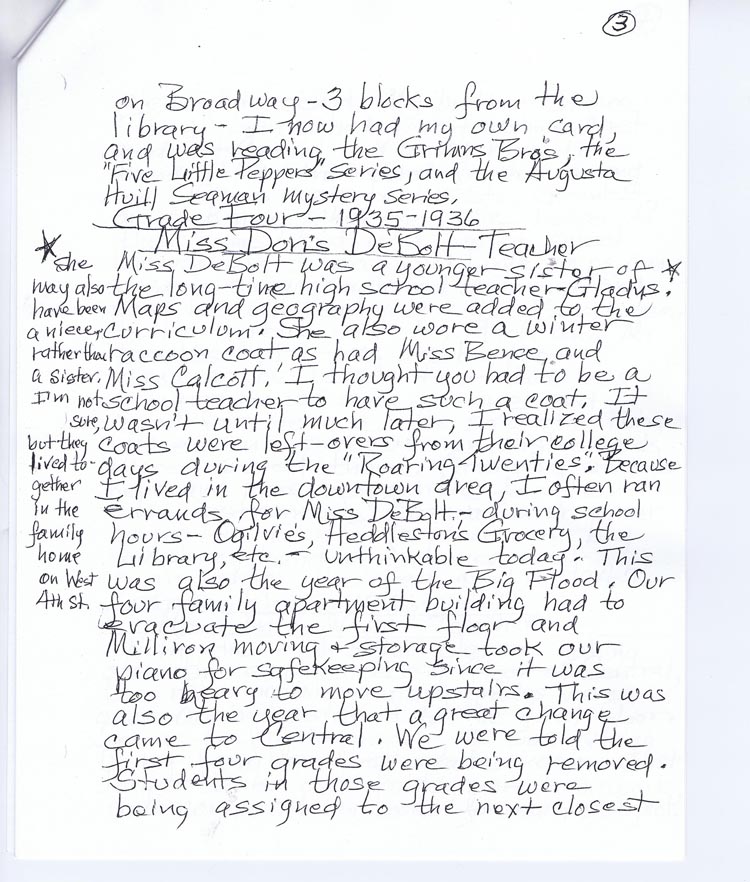 3
on Broadway - 3 blocks from the
library - I now had my own card,
and was reading the Grimms Bro's, the
"Five Little Peppers" series, and the Augusta
Huill Seaman mystery series.
Grade Four - 1935-1936
Miss Doris DeBolt - Teacher
Miss DeBolt was a younger sister of *
the long-time high school teacher - Gladys.
Maps and geography were added to the
curriculum. She also wore a winter
raccoon coat as had Miss Bence and
Miss Calcott. I thought you had to be a
school teacher to have such a coat. It
wasn't until much later, I realized these
coats were left-overs from their college
days during the "Roaring-Twenties". Because
I lived in the downtown area, I often ran
errands for Miss DeBolt - during school
hours - Ogilvie's, Heddleston's Grocery, the
Library, etc. - unthinkable today. This
was also the year of the Big Flood. Our
four family apartment building had to
evacuate the first floor and
Milliron moving & storage took our
piano for safekeeping since it was
too heavy to move upstairs. This was
also the year that a great change
came to Central. We were told the
first four grades were being removed.
Students in those grades were
being assigned to the next closest
* She
may also
have been
a niece,
rather than
a sister.
I'm not
sure,
but they
lived to-
gether
in the
family
home
on West
4th St.